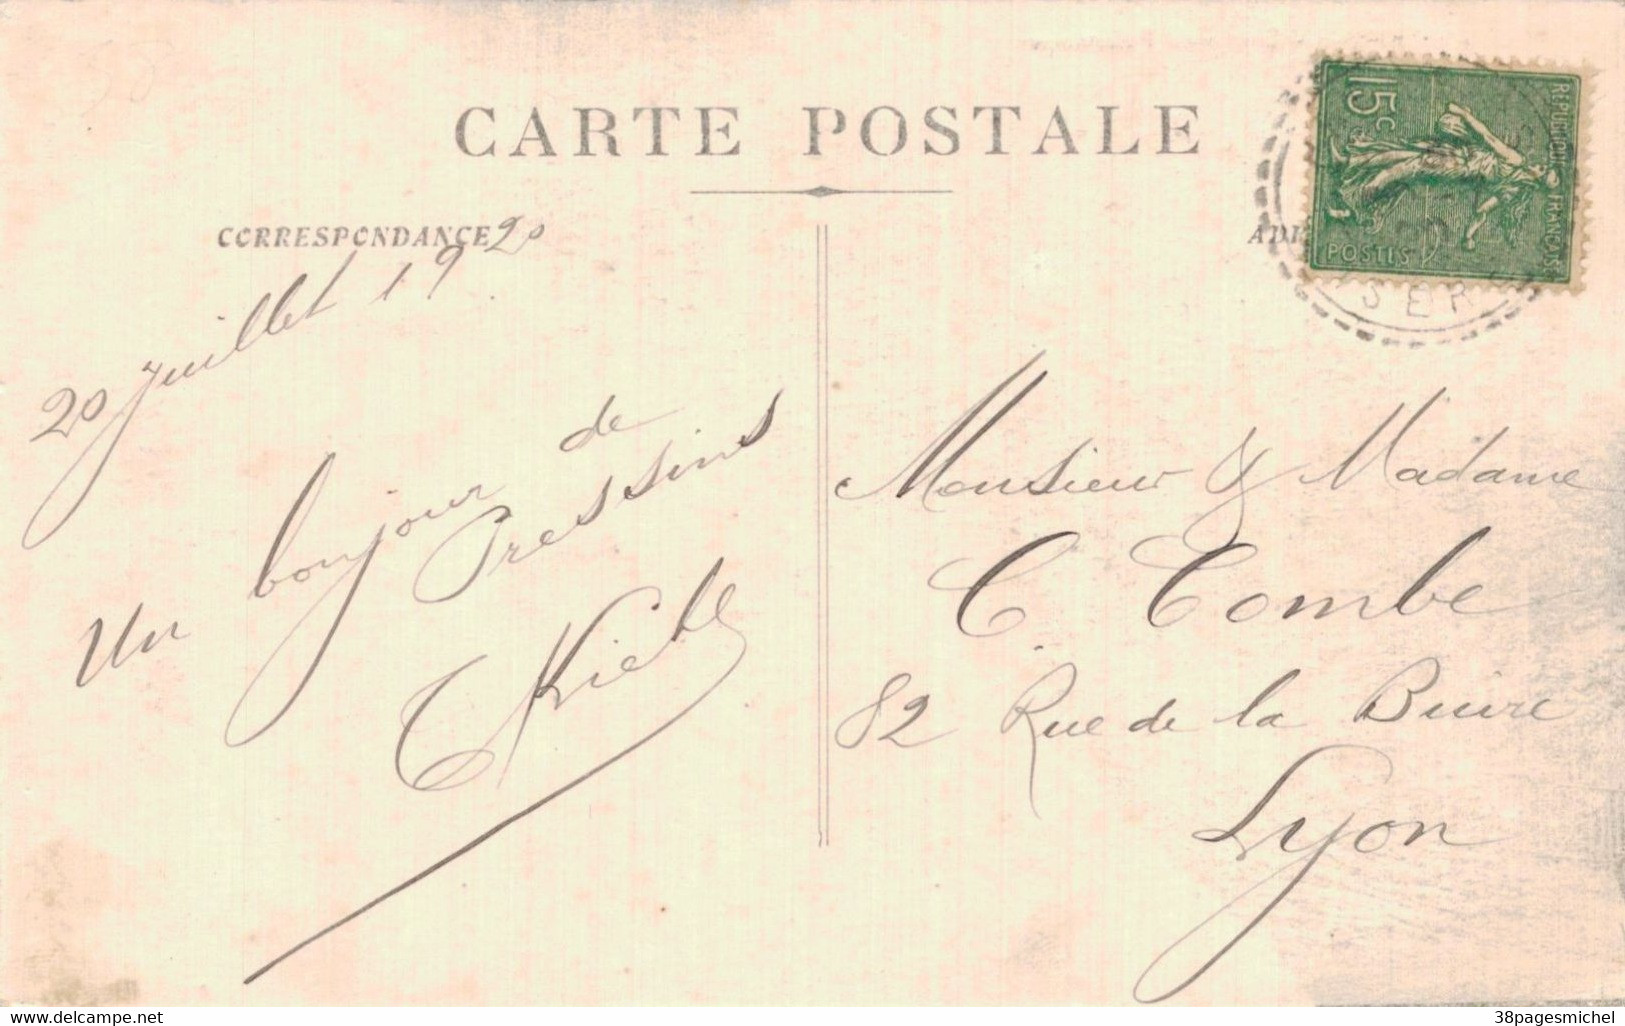 CARTE POSTALE
CORRESPONDANCE
20 juillet 1920
Un bonjour de
Pressins
Monsieur & Madame
C. Combe
82 Rue de la Buire
Lyon
15c
REPUBLIQUE FRANÇAISE
POSTES
ISERE
www.delcampe.net
38pagesmichel